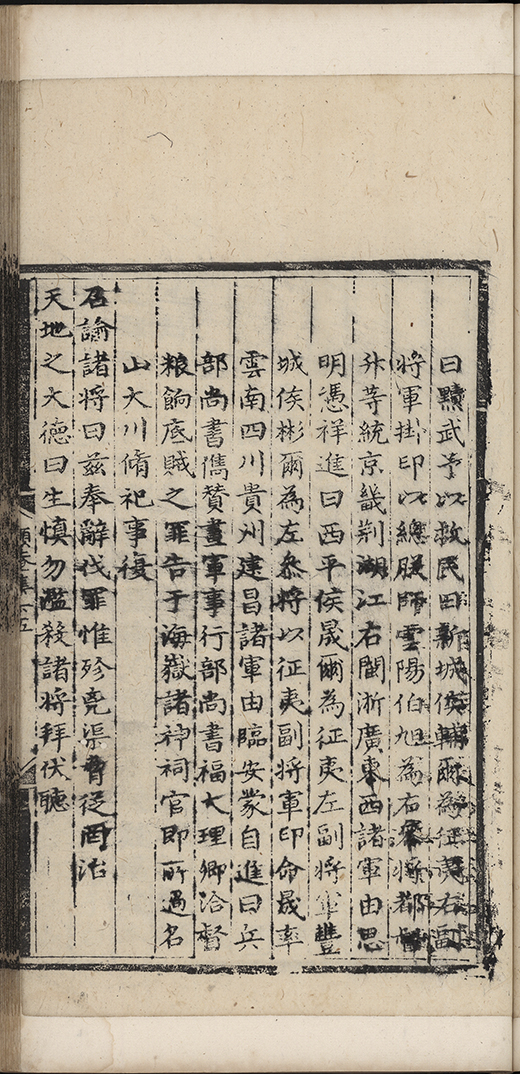 曰黷武予以救民曰新城侯輔爾為征夷右副
將軍掛印以總師雲陽伯旭為右參將都
等統京畿荆湖江右閩浙廣東西諸軍由思
明憑祥進曰西平侯晟爾為征夷左副將軍豐
城侯彬爾為左叅將以征夷副將軍印命晟率
雲南四川貴州建昌諸軍由臨安蒙自進曰兵
部尚書儁贊畫軍事行部尚書福大理卿洽督
粮餉底賊之罪告于海嶽諸神祠官即所過名
山大川脩祀事復
召諭諸將曰兹奉辭伐罪惟殄兇渠脅從罔治
天地之大德曰生慎勿濫殺諸將拜伏聽
頤菴集